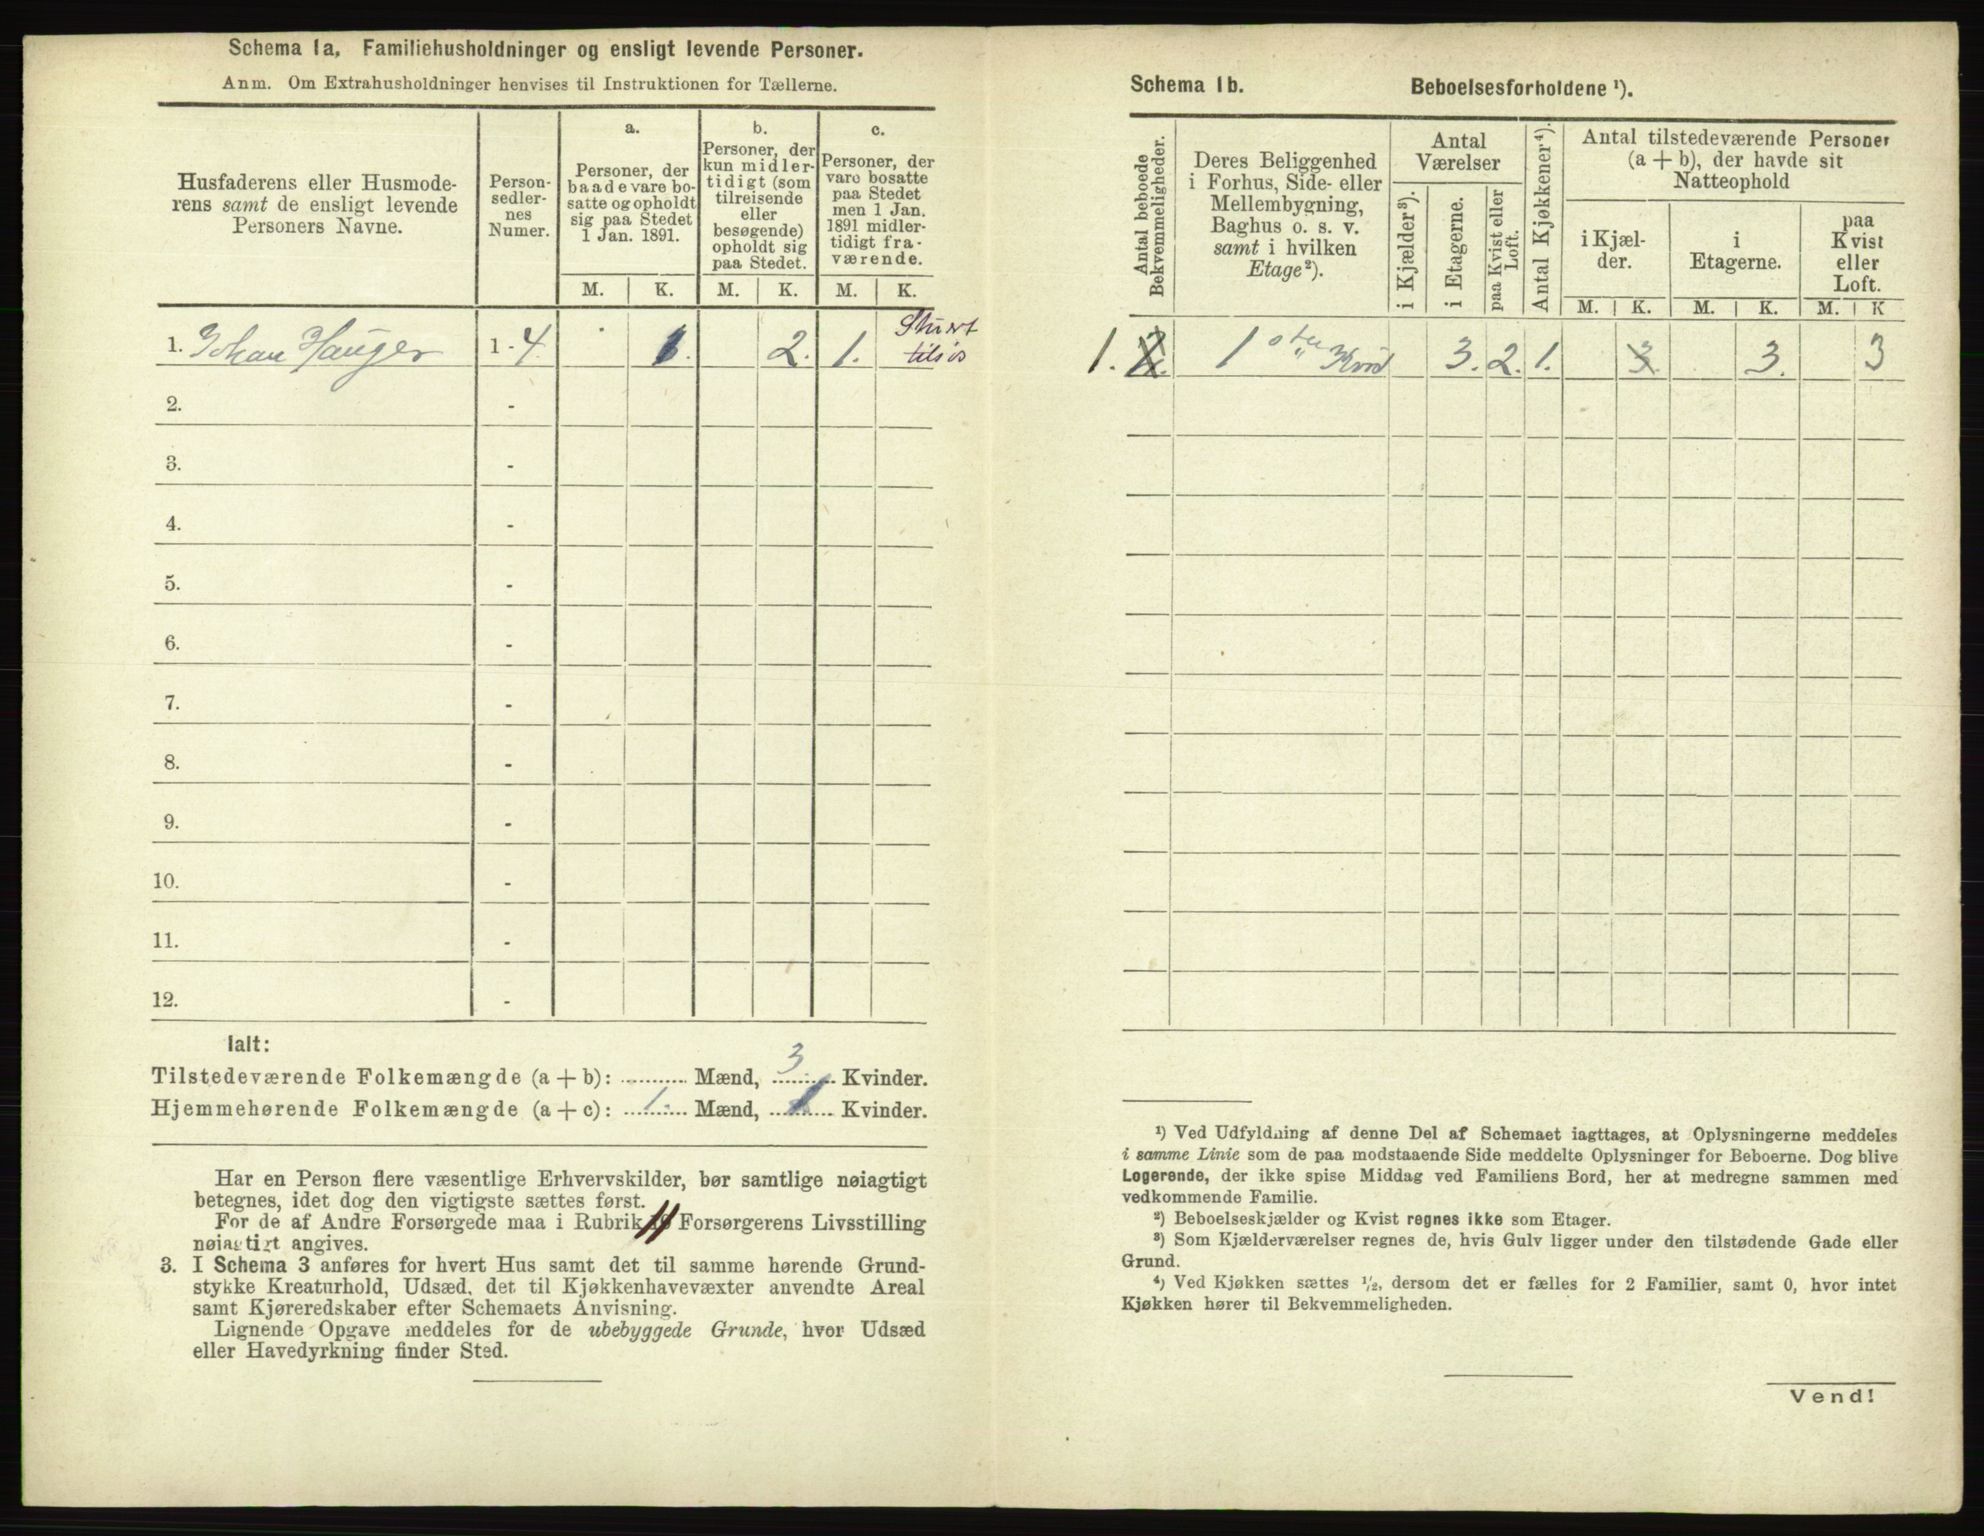 Schema 1a, Familiehusholdninger og ensligt levende Personer.
Anm. Om Extrahusholdninger henvises til Instruktionen for Tællerne.
Husfaderens eller Husmode-
rens samt de ensligt levende
Personers Navne.
Person-
sedler-
nes
Numer.
a.
Personer, der
baade vare bo-
satte og opholdt
sig paa Stedet
1 Jan. 1891.
b.
Personer, der
kun midler-
tidigt (som
tilreisende
eller
besøgende)
opholdt sig
paa Stedet.
c.
Personer, der
vare bosatte
paa Stedet
men 1 Jan.
1891 midler-
tidigt fra-
værende.
M. K. M. K. M. K.
1. Johan Hauger 1 - 4 1. 2. 1.
2. -
3. -
4. -
5. -
6. -
7. -
8. -
9. -
10. -
11. -
12. -
Ialt:
Tilstedeværende Folkemængde (a + b): ........... Mænd, 3 Kvinder.
Hjemmehørende Folkemængde (a + c): 1. Mænd, 1 Kvinder.
Har en Person flere væsentlige Erhvervskilder, bør samtlige nøiagtigt
betegnes, idet dog den vigtigste sættes først.
For de af Andre Forsørgede maa i Rubrik 11 Forsørgerens Livsstilling
nøiagtigt angives.
3. I Schema 3 anføres for hvert Hus samt det til samme hørende Grund-
stykke Kreaturhold, Udsæd, det til Kjøkkenhavevæxter anvendte Areal
samt Kjøreredskaber efter Schemaets Anvisning.
Lignende Opgave meddeles for de ubebyggede Grunde, hvor Udsæd
eller Havedyrkning finder Sted.
Schema 1b. Beboelsesforholdene ¹).
Antal beboede
Bekvemmeligheder.
Deres Beliggenhed
i Forhus, Side- eller
Mellembygning,
Baghus o. s. v.
samt i hvilken
Etage ²).
Antal
Værelser
i Kjælder ³).
i Etagerne.
paa Kvist eller
Loft.
Antal Kjøkkener ⁴).
Antal tilstedeværende Personer
(a + b), der havde sit
Natteophold
i Kjæl-
der.
i
Etagerne.
paa
Kvist
eller
Loft.
M. K. M. K. M. K
1. 1 3. 2. 1. 3. 3. 3
¹) Ved Udfyldning af denne Del af Schemaet iagttages, at Oplysningerne meddeles
i samme Linie som de paa modstaaende Side meddelte Oplysninger for Beboerne. Dog blive
Logerende, der ikke spise Middag ved Familiens Bord, her at medregne sammen med
vedkommende Familie.
²) Beboelseskjælder og Kvist regnes ikke som Etager.
³) Som Kjælderværelser regnes de, hvis Gulv ligger under den tilstødende Gade eller
Grund.
⁴) Ved Kjøkken sættes ½, dersom det er fælles for 2 Familier, samt 0, hvor intet
Kjøkken hører til Bekvemmeligheden.
Vend!